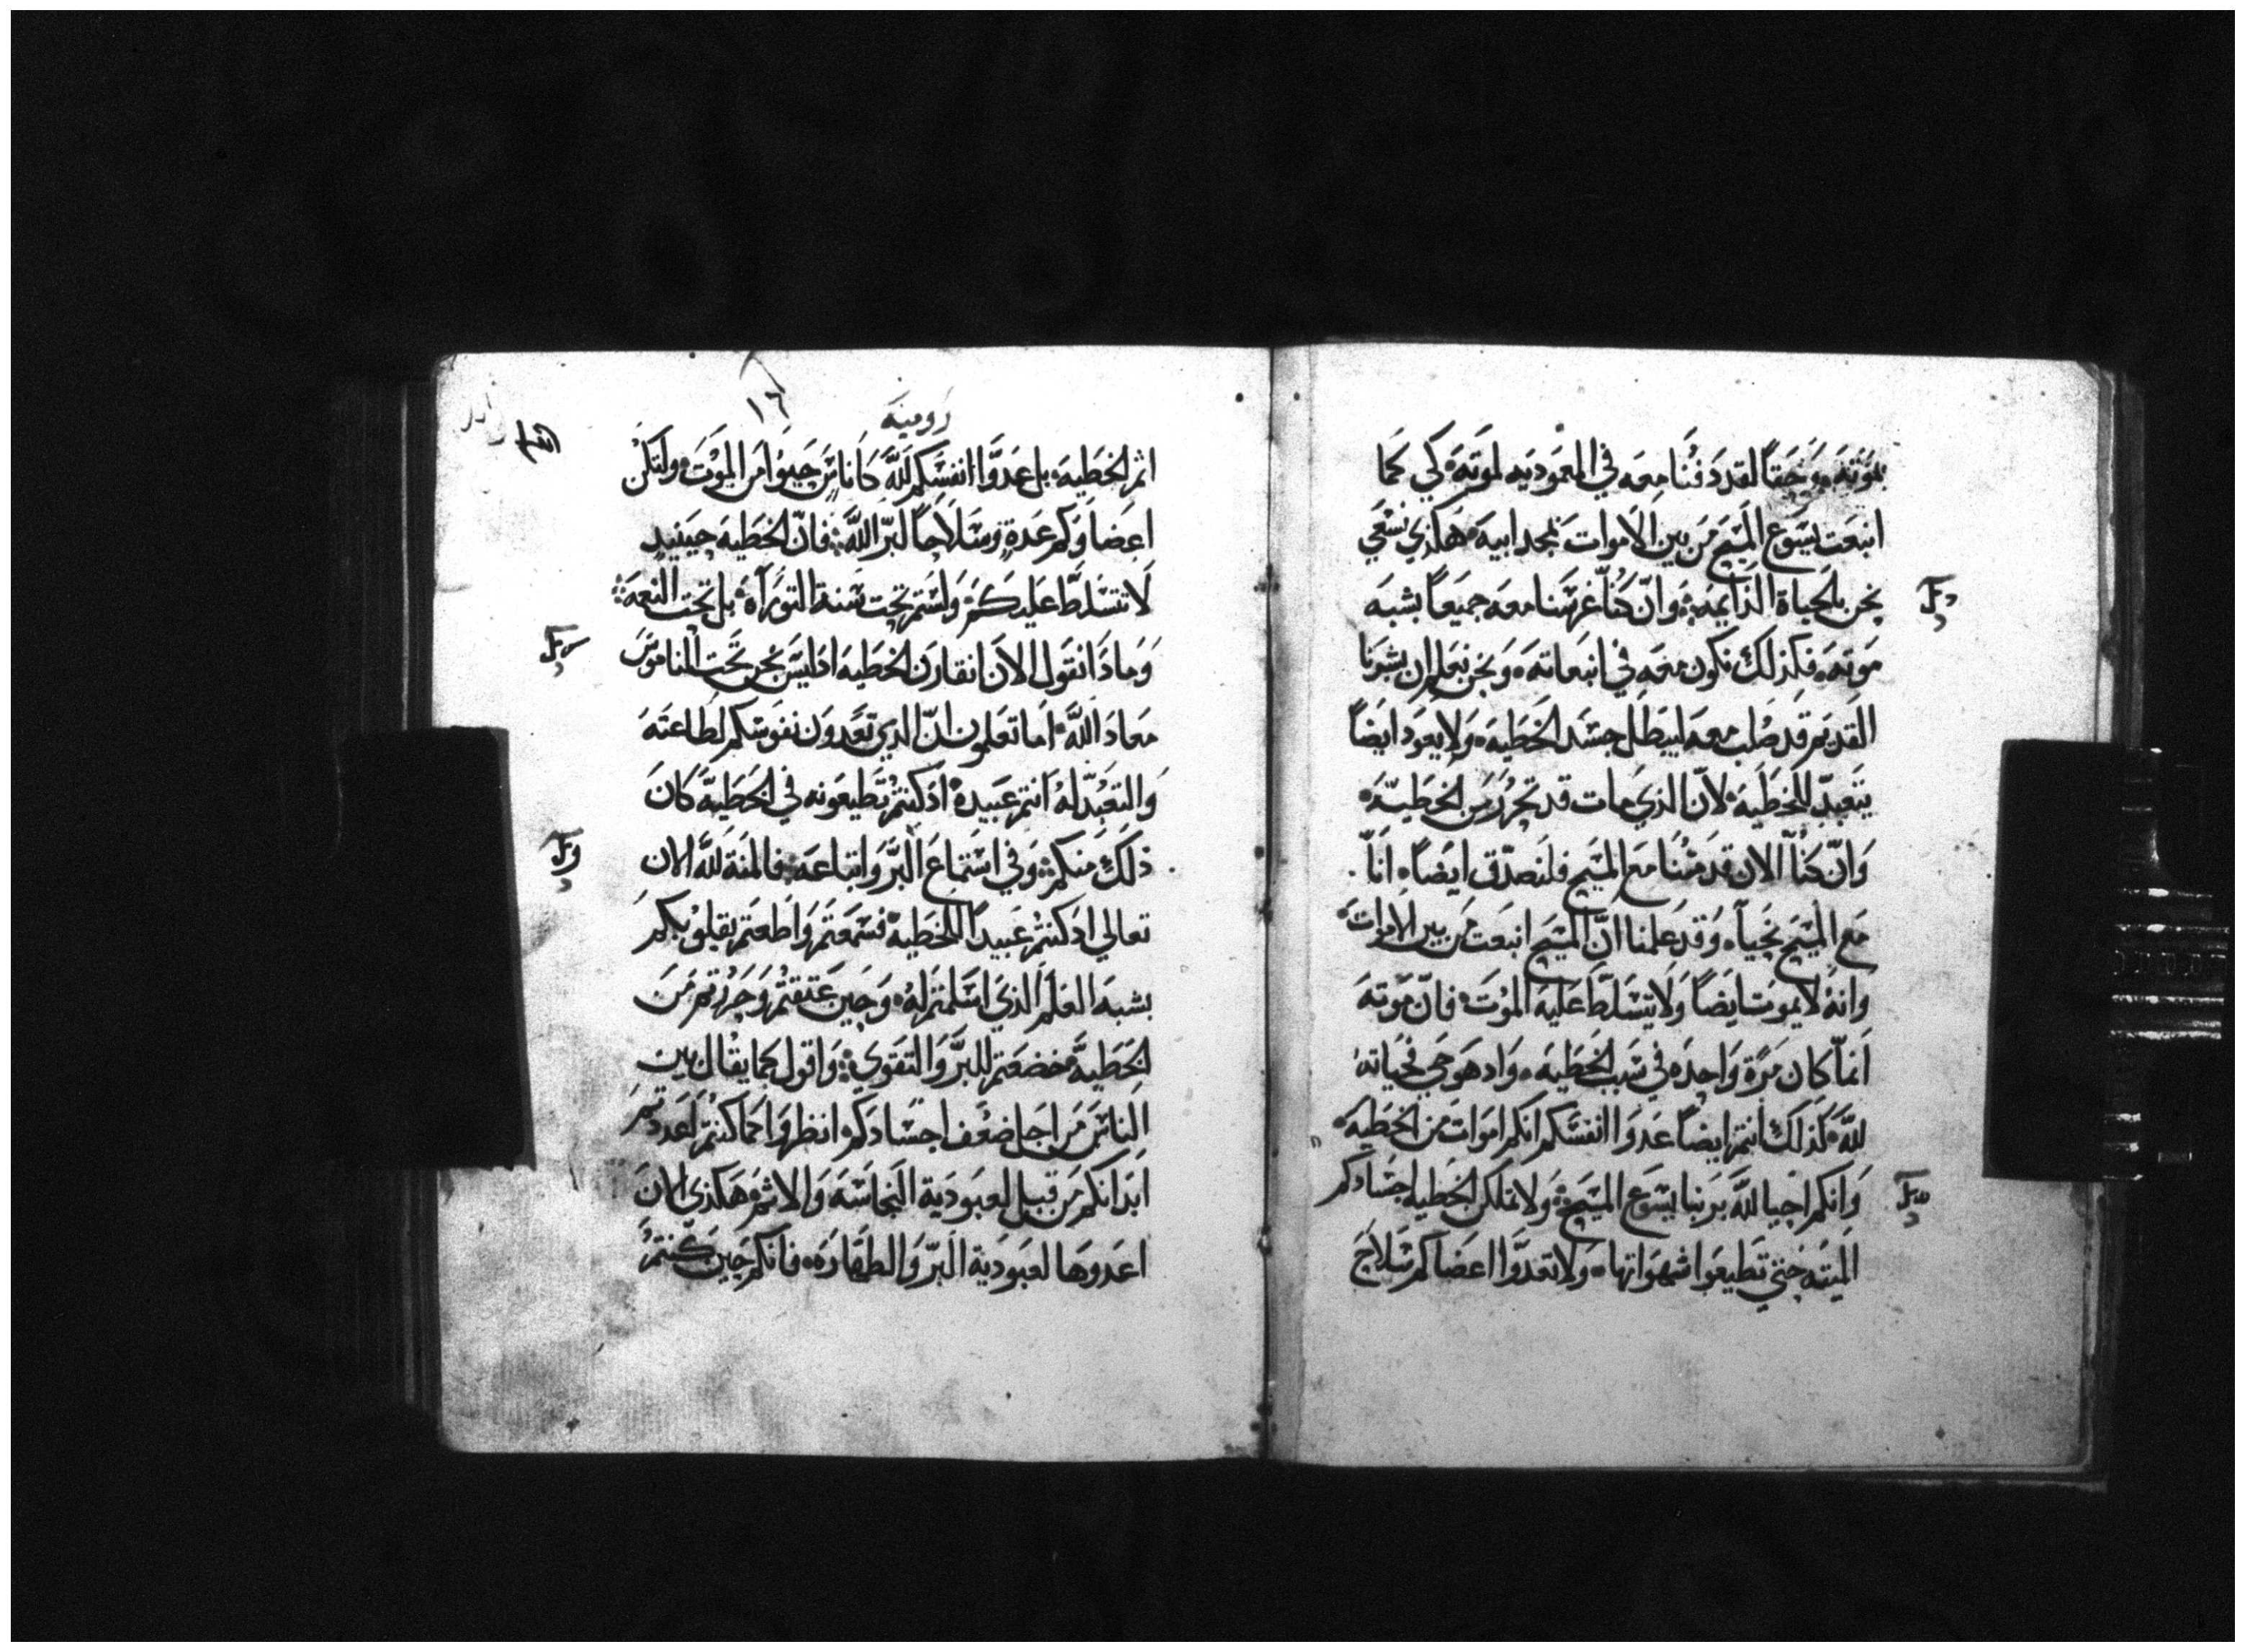 بموته وحقاً لقد دفنا معه في المعموديه لموته كي كما
انبعت يسوع المسيح من بين الاموات بمجد ابيه هكذي نسعي
نحن بالحياة الدايمه وان كنا غرسنا معه جميعاً بشبه
موته فكذلك نكون معه في انبعاته ونحن نعلم ان بشرنا
القديم قد صلب معه ليبطل جسد الخطيه ولا يعود ايضاً
يتعبد للخطيه لان الذي مات قد تحرر من الخطيه
وان كنا الان قد متنا مع المسيح فلنصدق ايضاً انا
مع المسيح نحيا وقد علمنا ان المسيح انبعت من بين الاموات
وانه لا يموت ايضاً ولا يتسلط عليه الموت فان موته
انما كان مرة واحده في سبب الخطيه واد هو حي فحياته
لله كذلك انتم ايضاً عدوا انفسكم انكم اموات من الخطيه
وانكم احيا لله بربنا يسوع المسيح ولا تملكن الخطيه اجسادكم
الميته حتي تطيعوا شهواتها ولا تعدوا اعضاكم سلاح
رومية
١٦
اثم الخطيه بل عدوا انفسكم لله كاناس حيوا من الموت ولتكن
اعضاوكم عدة وسلاحاً لبر الله فان الخطيه حينيد
لا تتسلط عليكم ولستم تحت سنة التوراة بل تحت النعمه
وما دا نقول الان انقارن الخطيه اد ليس نحن تحت الناموس
معاد الله اما تعلمون ان الدي تعدون نفوسكم لطاعته
والتعبد له انتم عبيده اد كنتم تطيعونه في الخطيه كان
ذلك منكم وفي استماع البر واتباعه فالمنة لله الان
تعالي اد كنتم عبيداً للخطيه فسمعتم واطعتم بقلوبكم
بشبه العلم الذي اسلمتم له وحين عتقتم وحررتم من
الخطية خضعتم للبر والتقوي واقول كما يقال بين
الناس من اجل ضعف اجسادكم انظروا كما كنتم اعددتم
ابدانكم من قبل لعبودية النجاسه والاثم هكذي الان
اعدوها لعبودية البر والطهاره فانكم حين كنتم